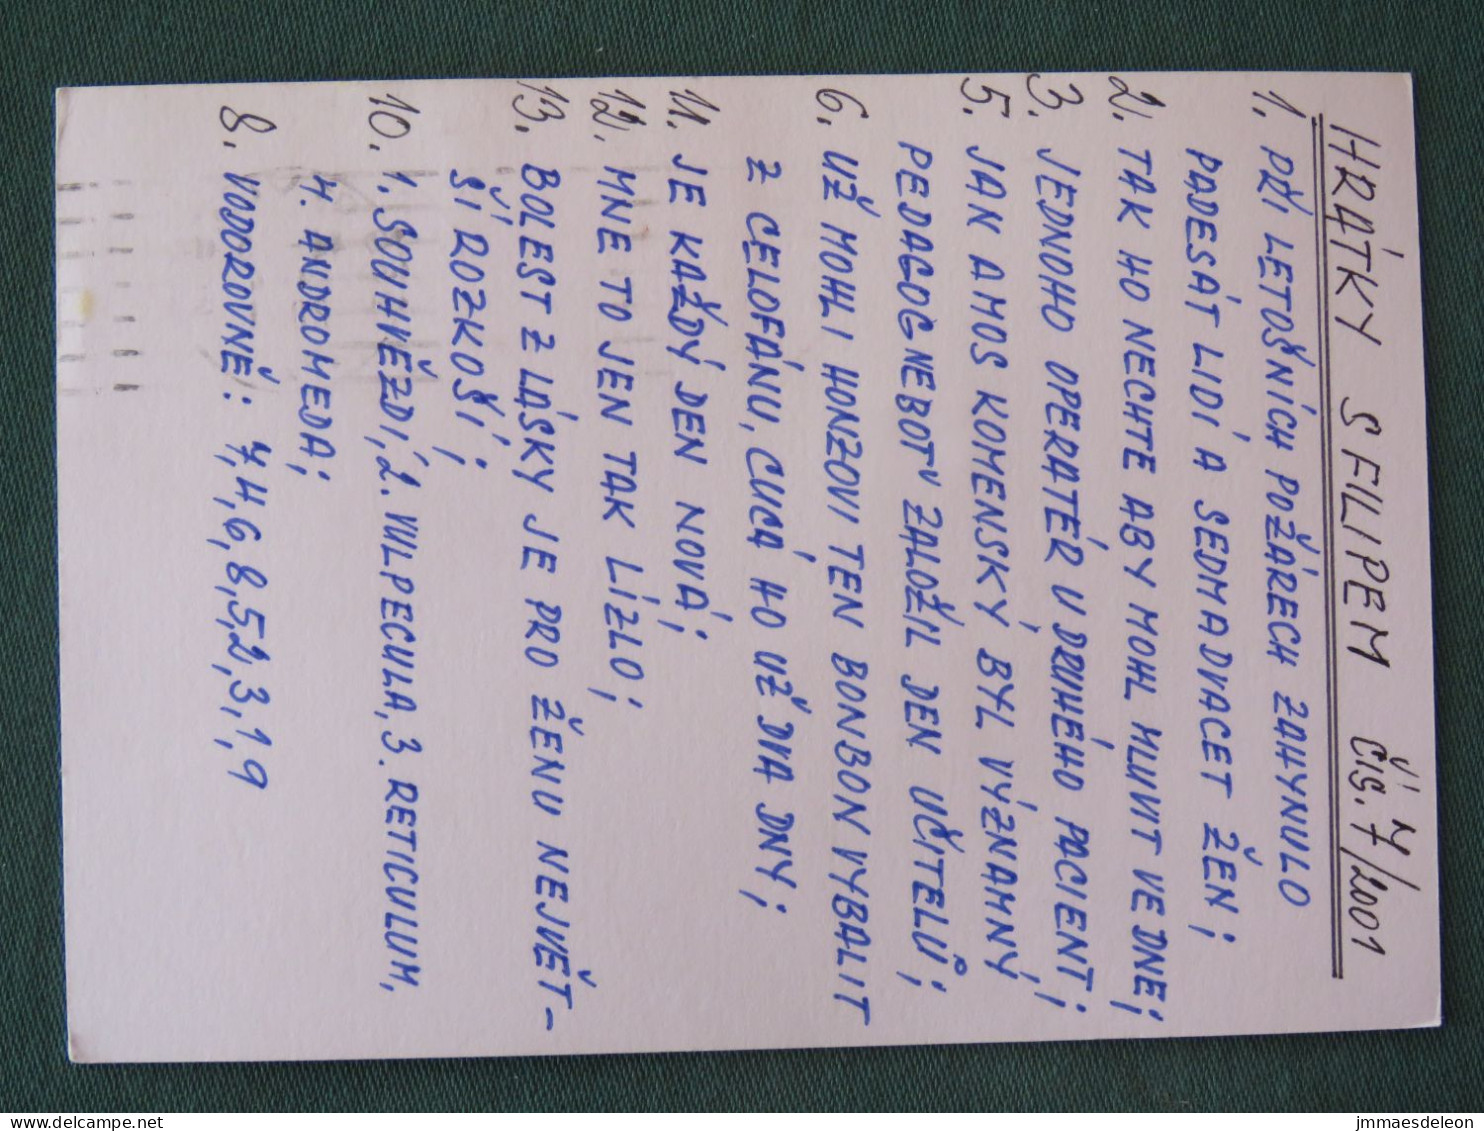 HRÁTKY S FILIPEM ČÍS. 7/2001
1. PŘI LETOŠNÍCH POŽÁRECH ZAHYNULO
PADESÁT LIDÍ A SEDMADVACET ŽEN;
2. TAK HO NECHTE ABY MOHL MLUVIT VE DNE;
3. JEDNOHO OPERATÉR U DRUHÉHO PACIENT;
5. JAN AMOS KOMENSKÝ BYL VÝZNAMNÝ
PEDAGOG NEBOŤ ZALOŽIL DEN UČITELŮ;
6. UŽ MOHLI HONZOVI TEN BONBON VYBALIT
Z CELOFÁNU, CUCÁ HO UŽ DVA DNY;
11. JE KAŽDÝ DEN NOVÁ;
12. MNE TO JEN TAK LÍZLO;
13. BOLEST Z LÁSKY JE PRO ŽENU NEJVĚT-
ŠÍ ROZKOŠÍ;
10. 1. SOUHVĚZDÍ, 2. VULPECULA, 3. RETICULUM,
4. ANDROMEDA;
8. VODOROVNĚ: 7,4,6,8,5,2,3,1,9
delcampe.net
jmmaesdeleon